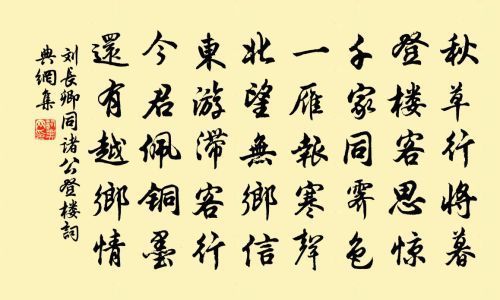 秋草行将暮
登楼客思惊
千家同霽色
一雁報寒聲
北望無鄉信
東游滞客行
今君佩銅墨
還有越鄉情
刘長卿同诸公登楼詞
典網集